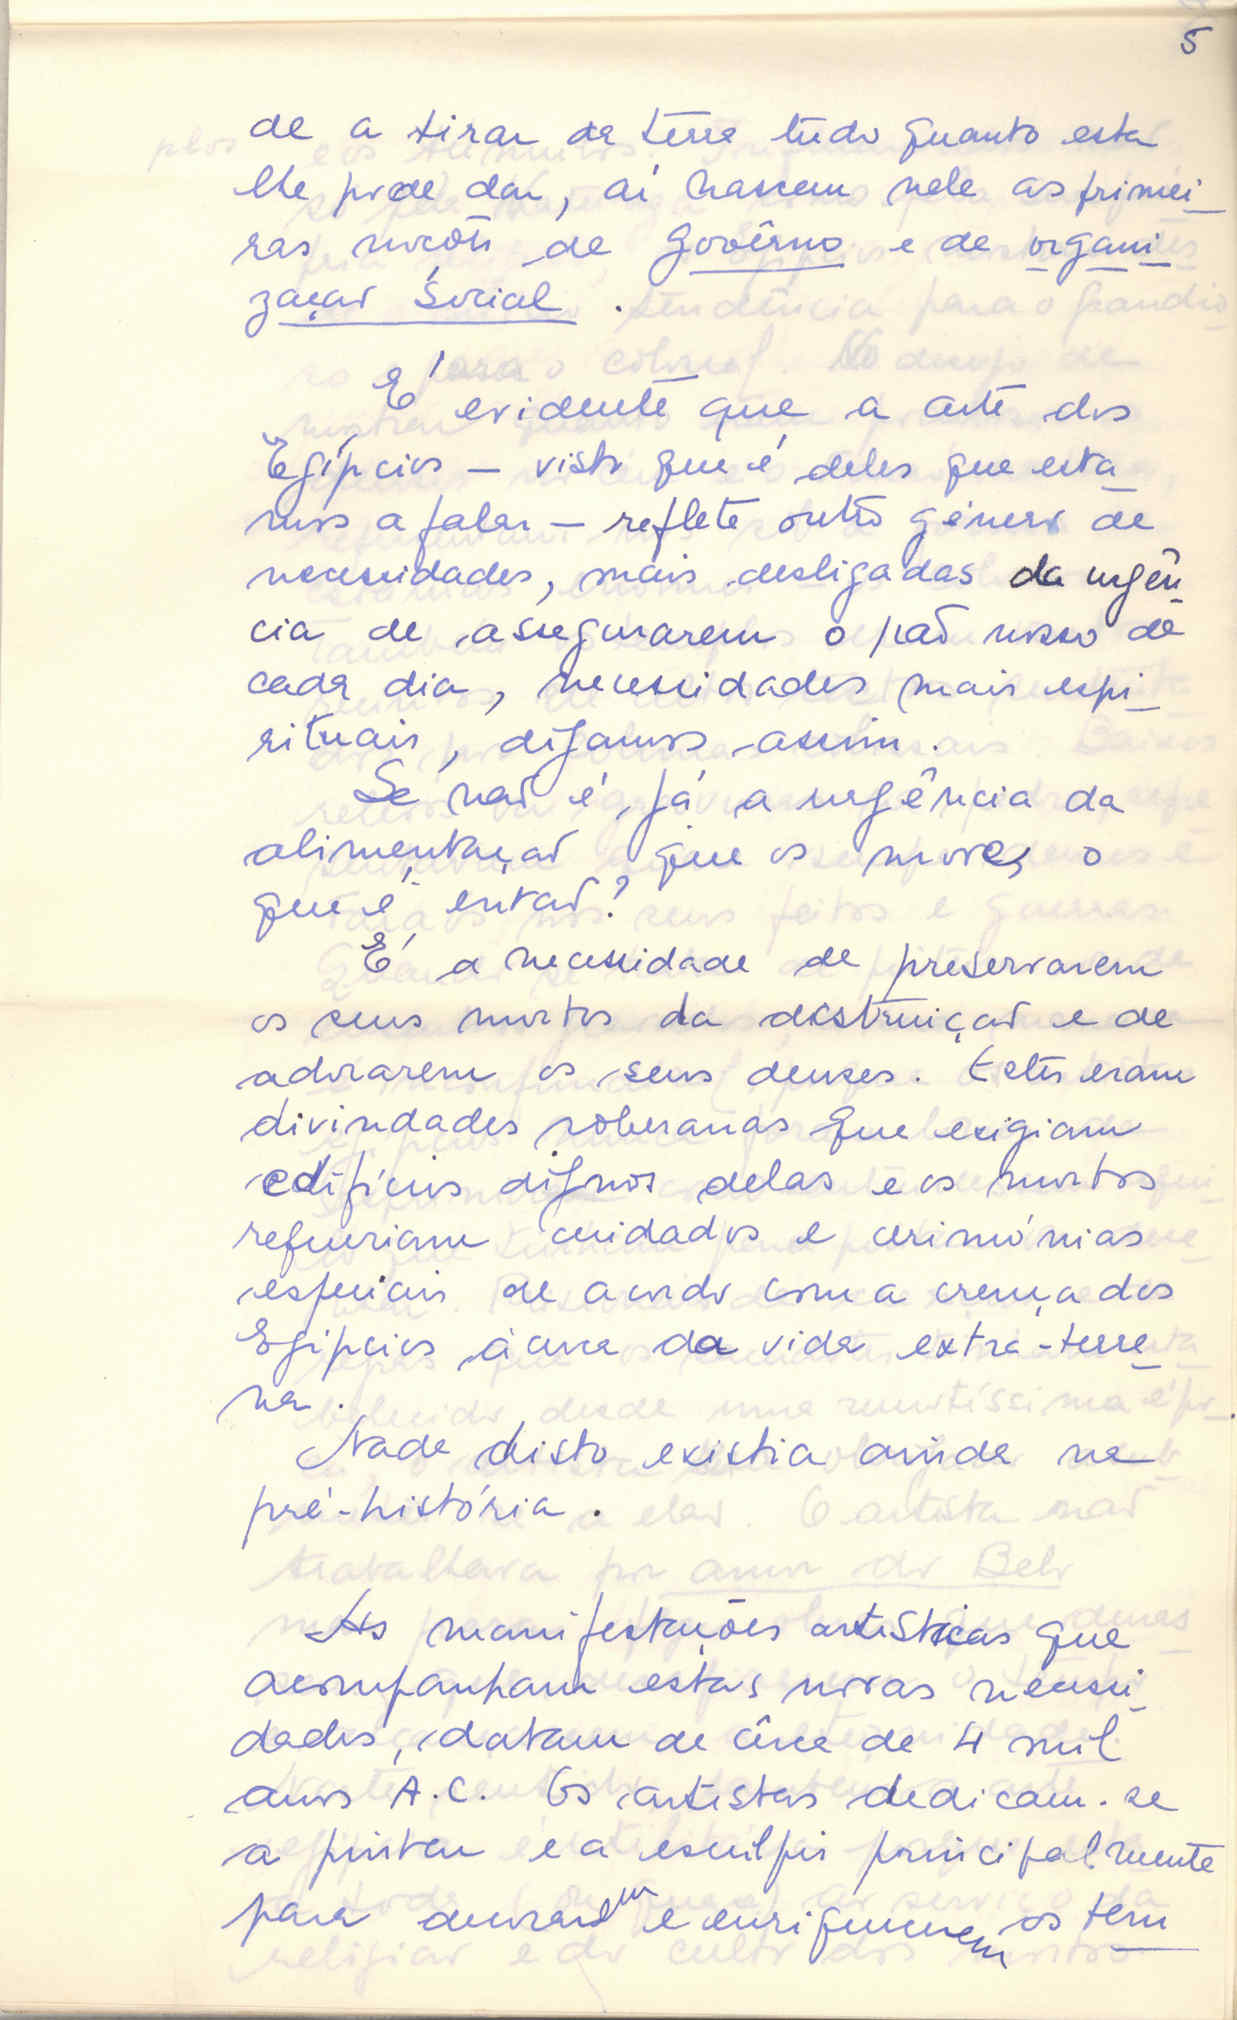 5
de a tirar da terra tudo quanto esta
lhe pode dar, aí nascem nele as primei-
ras noções de govêrno e de organi-
zação social.
É evidente que a arte dos
Egípcios — visto que é deles que esta-
mos a falar — reflete outro género de
necessidades, mais desligadas da urgên-
cia de assegurarem o pão nosso de
cada dia, necessidades mais espi-
rituais, digamos assim.
Se não é já a urgência da
alimentação que os move, o
que é então?
É a necessidade de preservarem
os seus mortos da destruição e de
adorarem os seus deuses. Estes eram
divindades soberanas que exigiam
edifícios dignos delas e os mortos
requeriam cuidados e cerimónias
especiais de acordo com a crença dos
Egípcios àcerca da vida extra-terre-
na.
Nada disto existia ainda na
pré-história.
As manifestações artísticas que
acompanham estas novas necessi-
dades, datam de cêrca de 4 mil
anos A.C. Os artistas dedicam-se
a pintar e a esculpir principalmente
para decorarem e enriquecerem os tem-